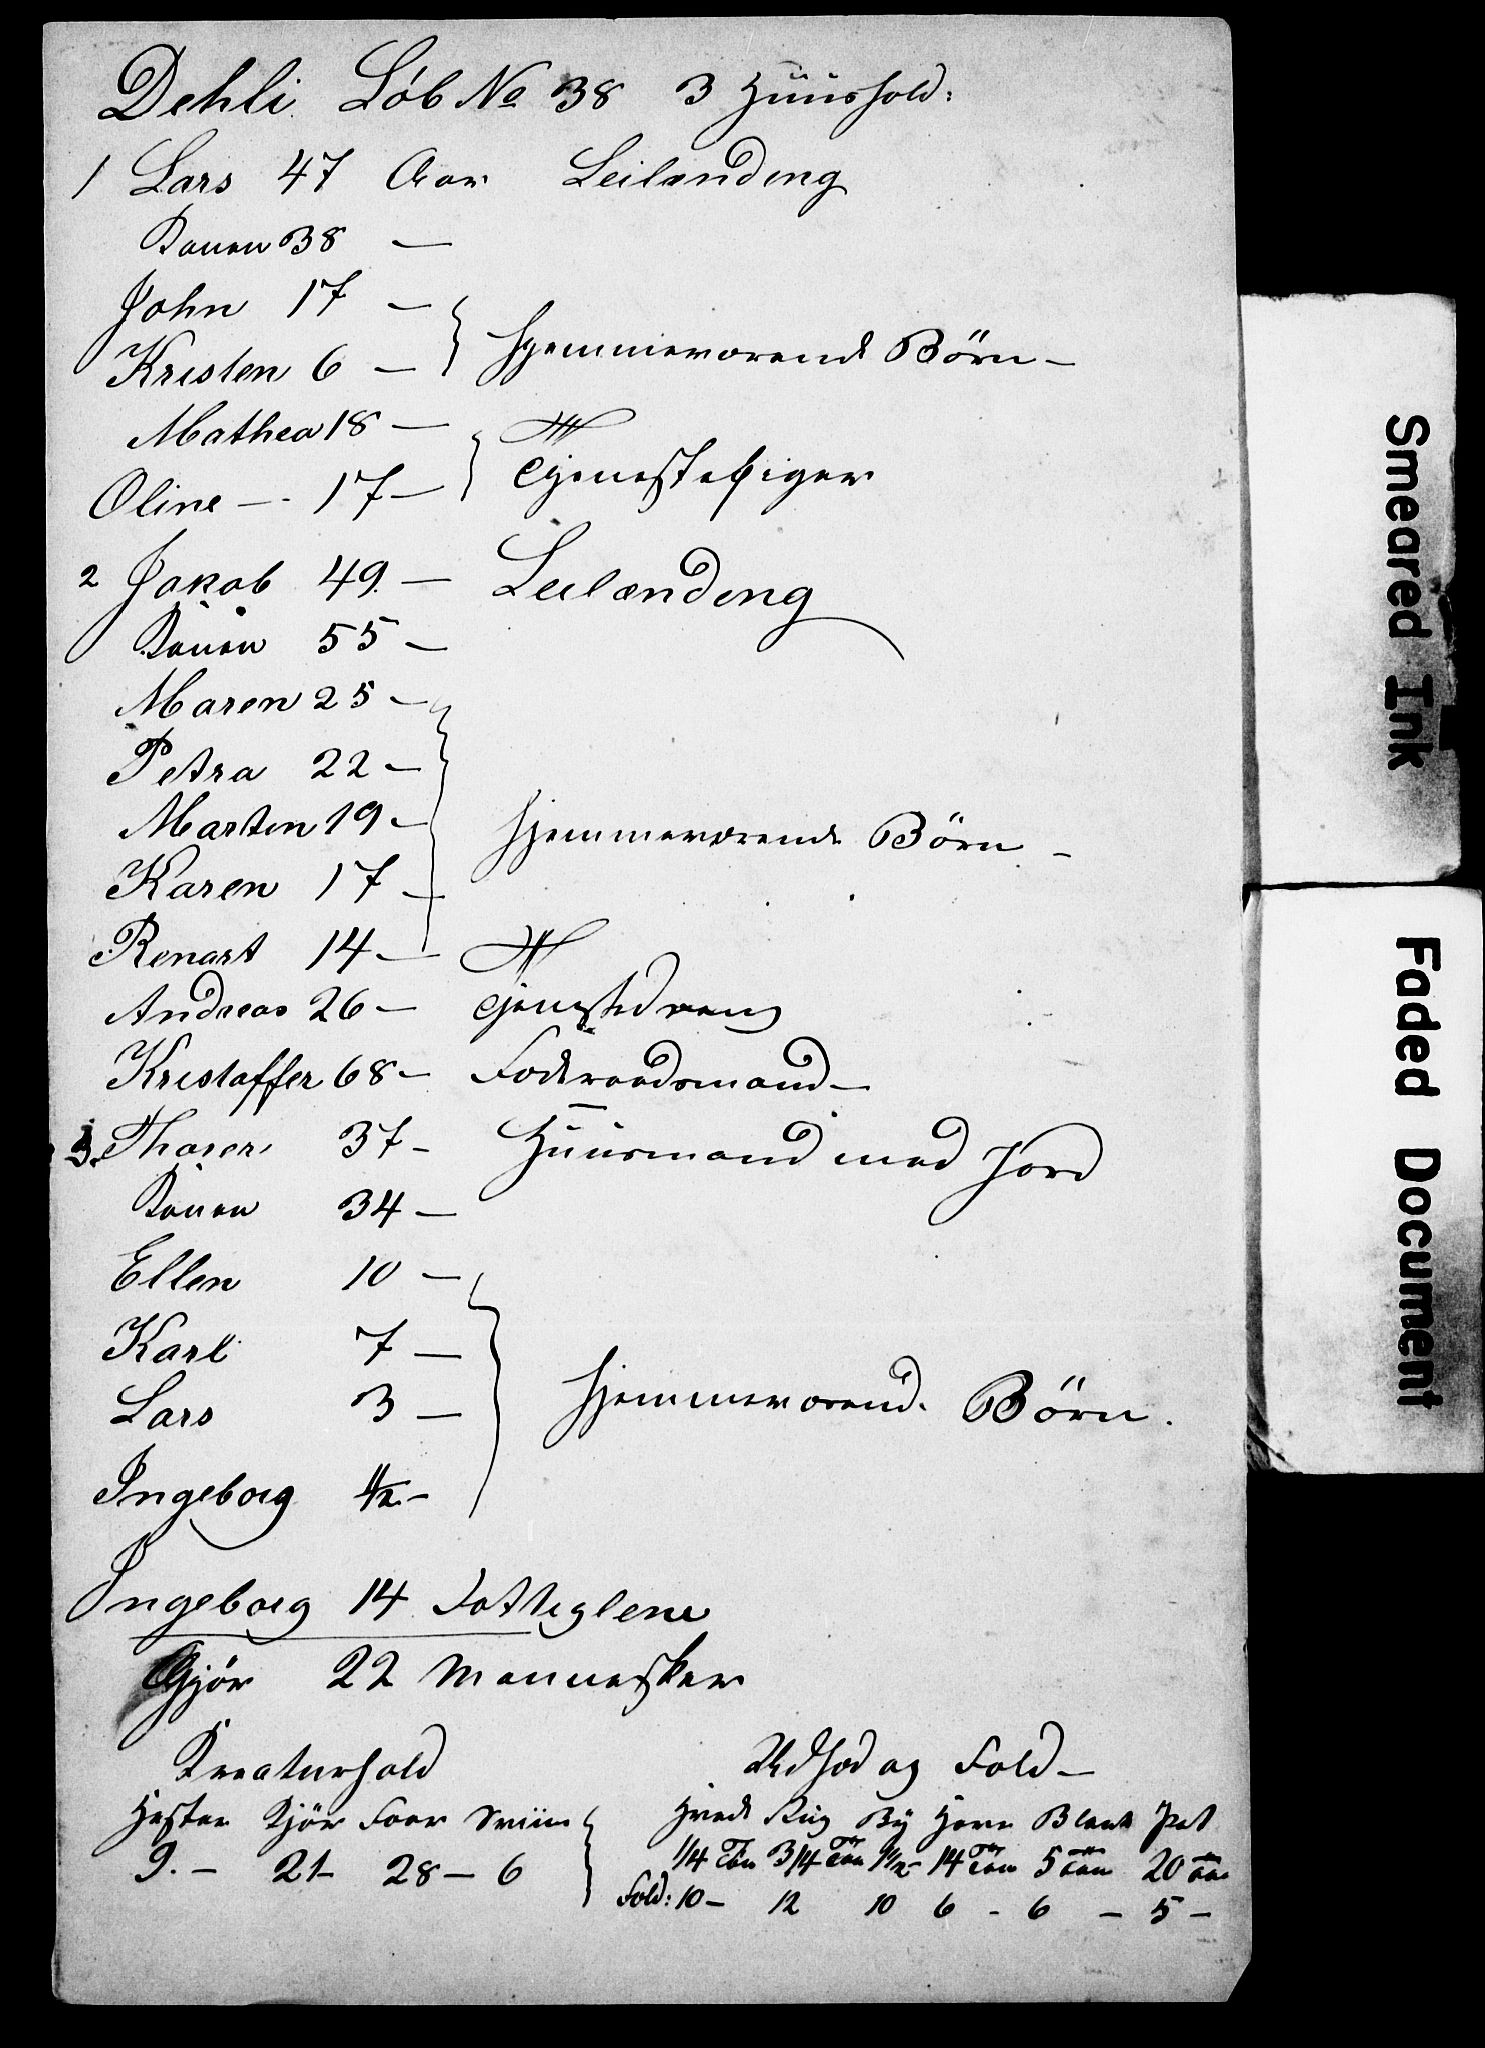 Dehli Löb No 38 3 Huushold:
1 Lars 47 Aar Leilænding
Konen 38 —
John 17 —
Kristen 6 — } Hjemmeværende Börn —
Mathea 18 —
Oline — 17 — } Tjenestepiger
2 Jakob 49. — Leilænding
Konen 55 —
Maren 25 —
Petra 22 —
Martin 19 — } Hjemmeværende Börn —
Karen 17 —
Renart 14 —
Andreas 26 — Tjenestedreng
Kristoffer 68 — Föderaadsmand —
3. Thorer 37 — Huusmand med Jord
Konen 34 —
Ellen 10 —
Karl 7 —
Lars 3 — } Hjemmeværend. Börn.
Ingeborg 1/2 —
Ingeborg 14 Fattiglem
Gjör 22 Mennesker
Kreaturhold
Heste Kjör Faar Sviin
9. — 21 — 28 — 6
Udsæd og Fold —
Hvede Rug Byg Havre Blank Pot
1/4 Tön 3/4 Tön 1 1/2 — 14 Tön 5 Tön 20 Tön
Fold: 10 — 12 10 6 — 6 — 5 —
Smeared Ink
Faded Document